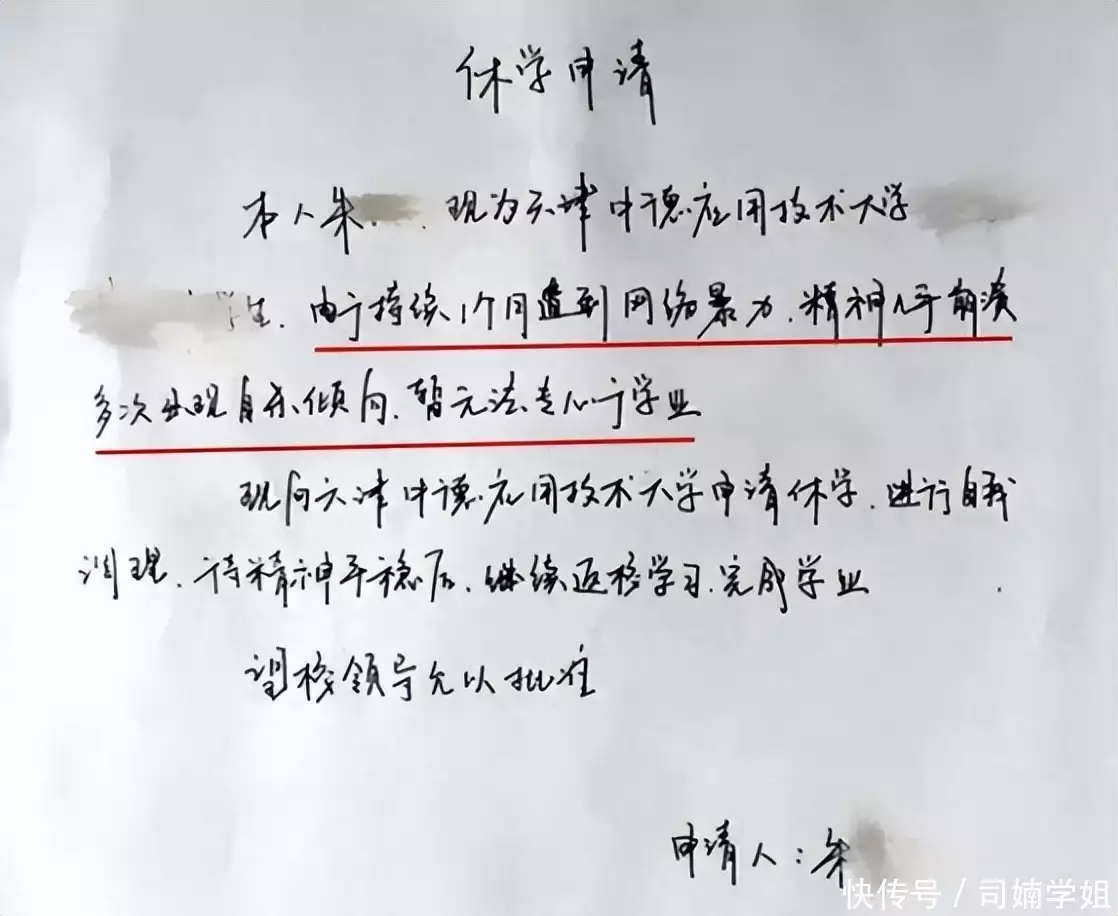 休学申请
本人朱 现为天津中德应用技术大学
学生.由于持续1个月遭到网络暴力.精神几乎崩溃
多次出现自杀倾向.暂无法专心于学业
现向天津中德应用技术大学申请休学.进行自我
调理.待精神平稳后.继续返校学习.完成学业
望校领导允以批准
申请人:朱
快传号 / 司媏学姐